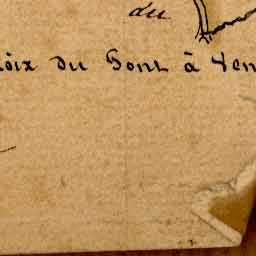 du
oix du Pont à Ven